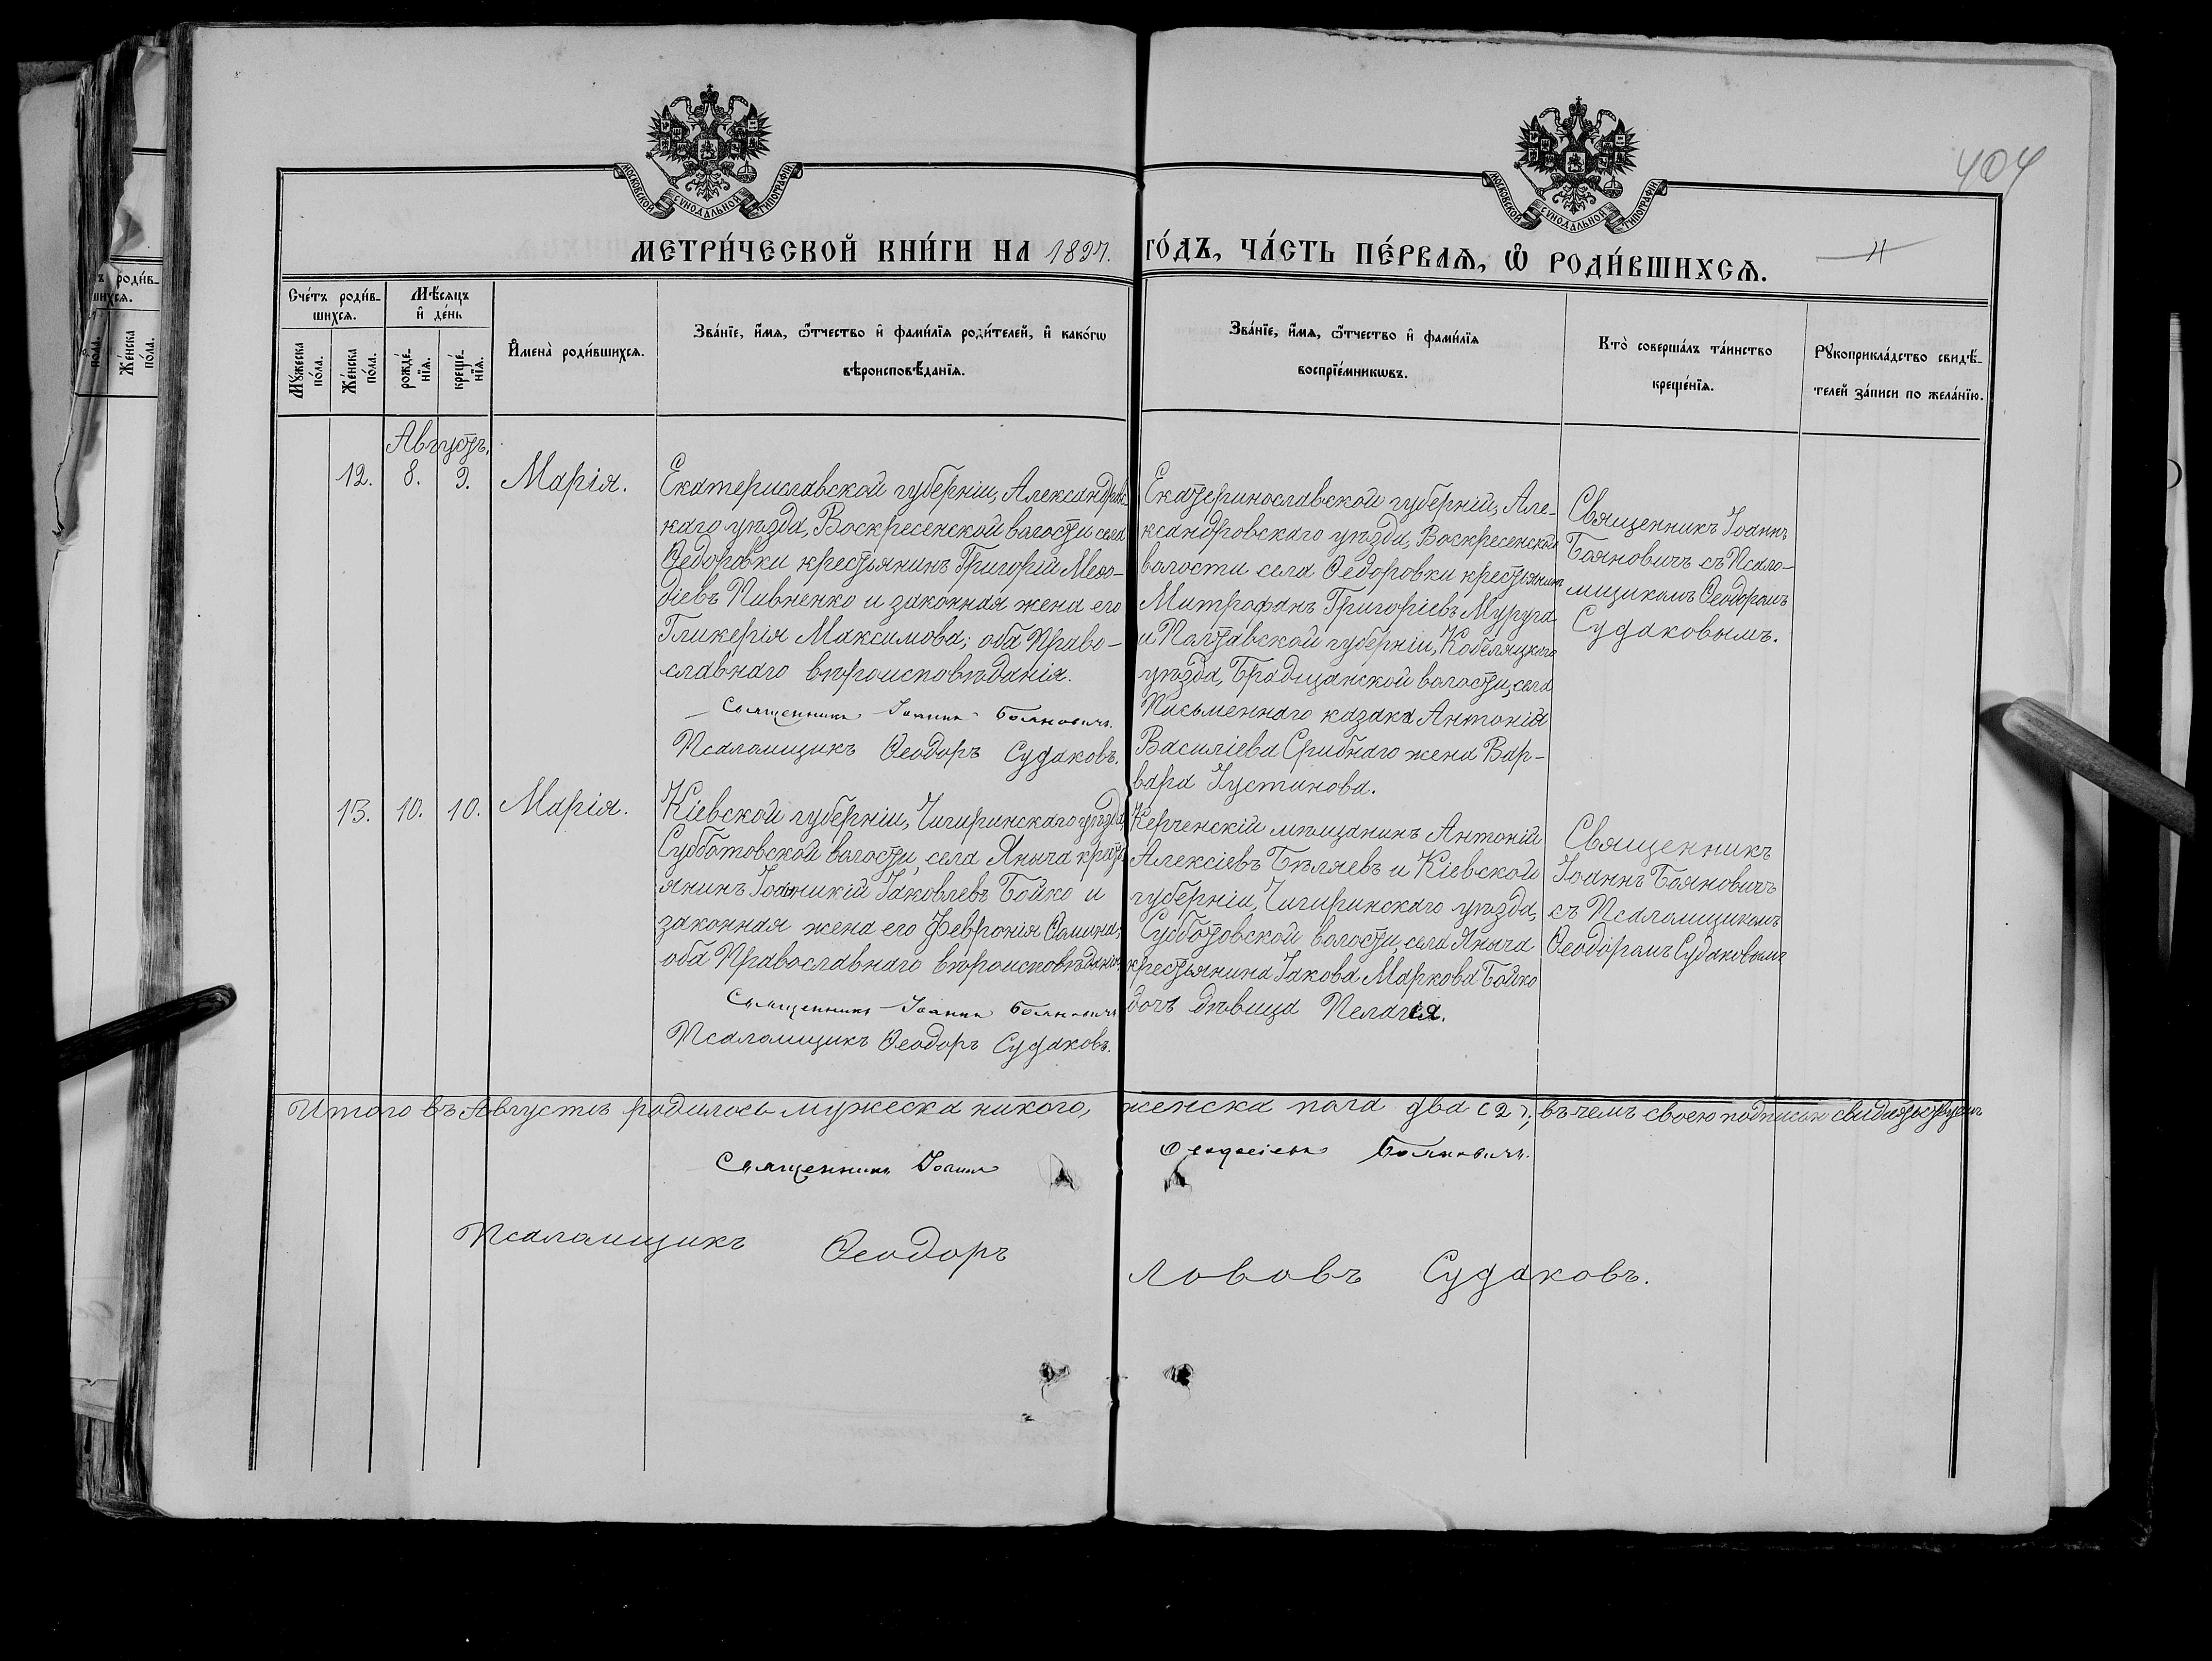 МОСКОВСКОЙ СѴНОДАЛЬНОЙ ТИПОГРАФІИ
МОСКОВСКОЙ СѴНОДАЛЬНОЙ ТИПОГРАФІИ
404
МЕТРИ́ЧЕСКОЙ КНИ́ГИ НА 1897. ГО́ДЪ, ЧА́СТЬ ПЕ́РВАѦ, Ѡ҆ РОДИ́ВШИХСѦ.
Сче́тъ роди́в-
шихсѧ.
Мꙋ́жеска
по́ла.
Же́нска
по́ла.
Мѣ́сѧцъ
и҆ де́нь
рожде́-
нїѧ.
креще́-
нїѧ.
И҆мена̀ роди́вшихсѧ.
Зва́нїе, и҆́мѧ, ѻ҆́тчество и҆ фами́лїѧ роди́телей, и҆ како́гѡ
вѣроисповѣ́данїѧ.
Зва́нїе, и҆́мѧ, ѻ҆́тчество и҆ фами́лїѧ
воспрїе́мникѡвъ.
Кто̀ соверша́лъ та́инство
креще́нїѧ.
Рꙋкоприкла́дство свидѣ́-
телей за́писи по жела́нїю.
Августъ.
12. 8. 9. Марія.
Екатериславской губерніи, Александровс-
каго уѣзда, Воскресенской волости села
Ѳедоровки крестьянинъ Григорій Меѳо-
діевъ Пивненко и законная жена его
Гликерія Максимова; оба Право-
славнаго вѣроисповѣданія.
Священникъ Іоаннъ Бояновичъ.
Псаломщикъ Ѳеодоръ Судаковъ.
Екатеринославской губерніи, Але-
ксандровскаго уѣзда, Воскресенской
волости села Ѳедоровки крестьянинъ
Митрофанъ Григоріевъ Муруга
и Полтавской губерніи, Кобеляцкаго
уѣзда, Бродщанской волости, села
Письменнаго казака Антонія
Василіева Срибнаго жена Вар-
вара Іустинова.
Священникъ Іоаннъ
Бояновичъ съ Псало-
мщикомъ Ѳеодоромъ
Судаковымъ.
13. 10. 10. Марія.
Кіевской губерніи, Чигиринскаго уѣзда,
Субботовской волости, села Яныча кресть-
янинъ Іоанникій Іаковлевъ Бойко и
законная жена его Февронія Ѳомина;
оба Православнаго вѣроисповѣданія.
Священникъ Іоаннъ Бояновичъ
Псаломщикъ Ѳеодоръ Судаковъ.
Керченскій мѣщанинъ Антоній
Алексіевъ Бѣляевъ и Кіевской
губерніи, Чигиринскаго уѣзда,
Субботовской волости, села Яныча
крестьянина Іакова Маркова Бойко
дочь дѣвица Пелагія.
Священникъ
Іоаннъ Бояновичъ
съ Псаломщикомъ
Ѳеодоромъ Судаковымъ
Итого въ Августѣ родилось мужеска никого, женска пола два (2), въ чемъ своею подписью свидѣтельствуемъ
Священникъ Іоаннъ Ѳеодосіевъ Бояновичъ.
Псаломщикъ Ѳеодоръ Іововъ Судаковъ.